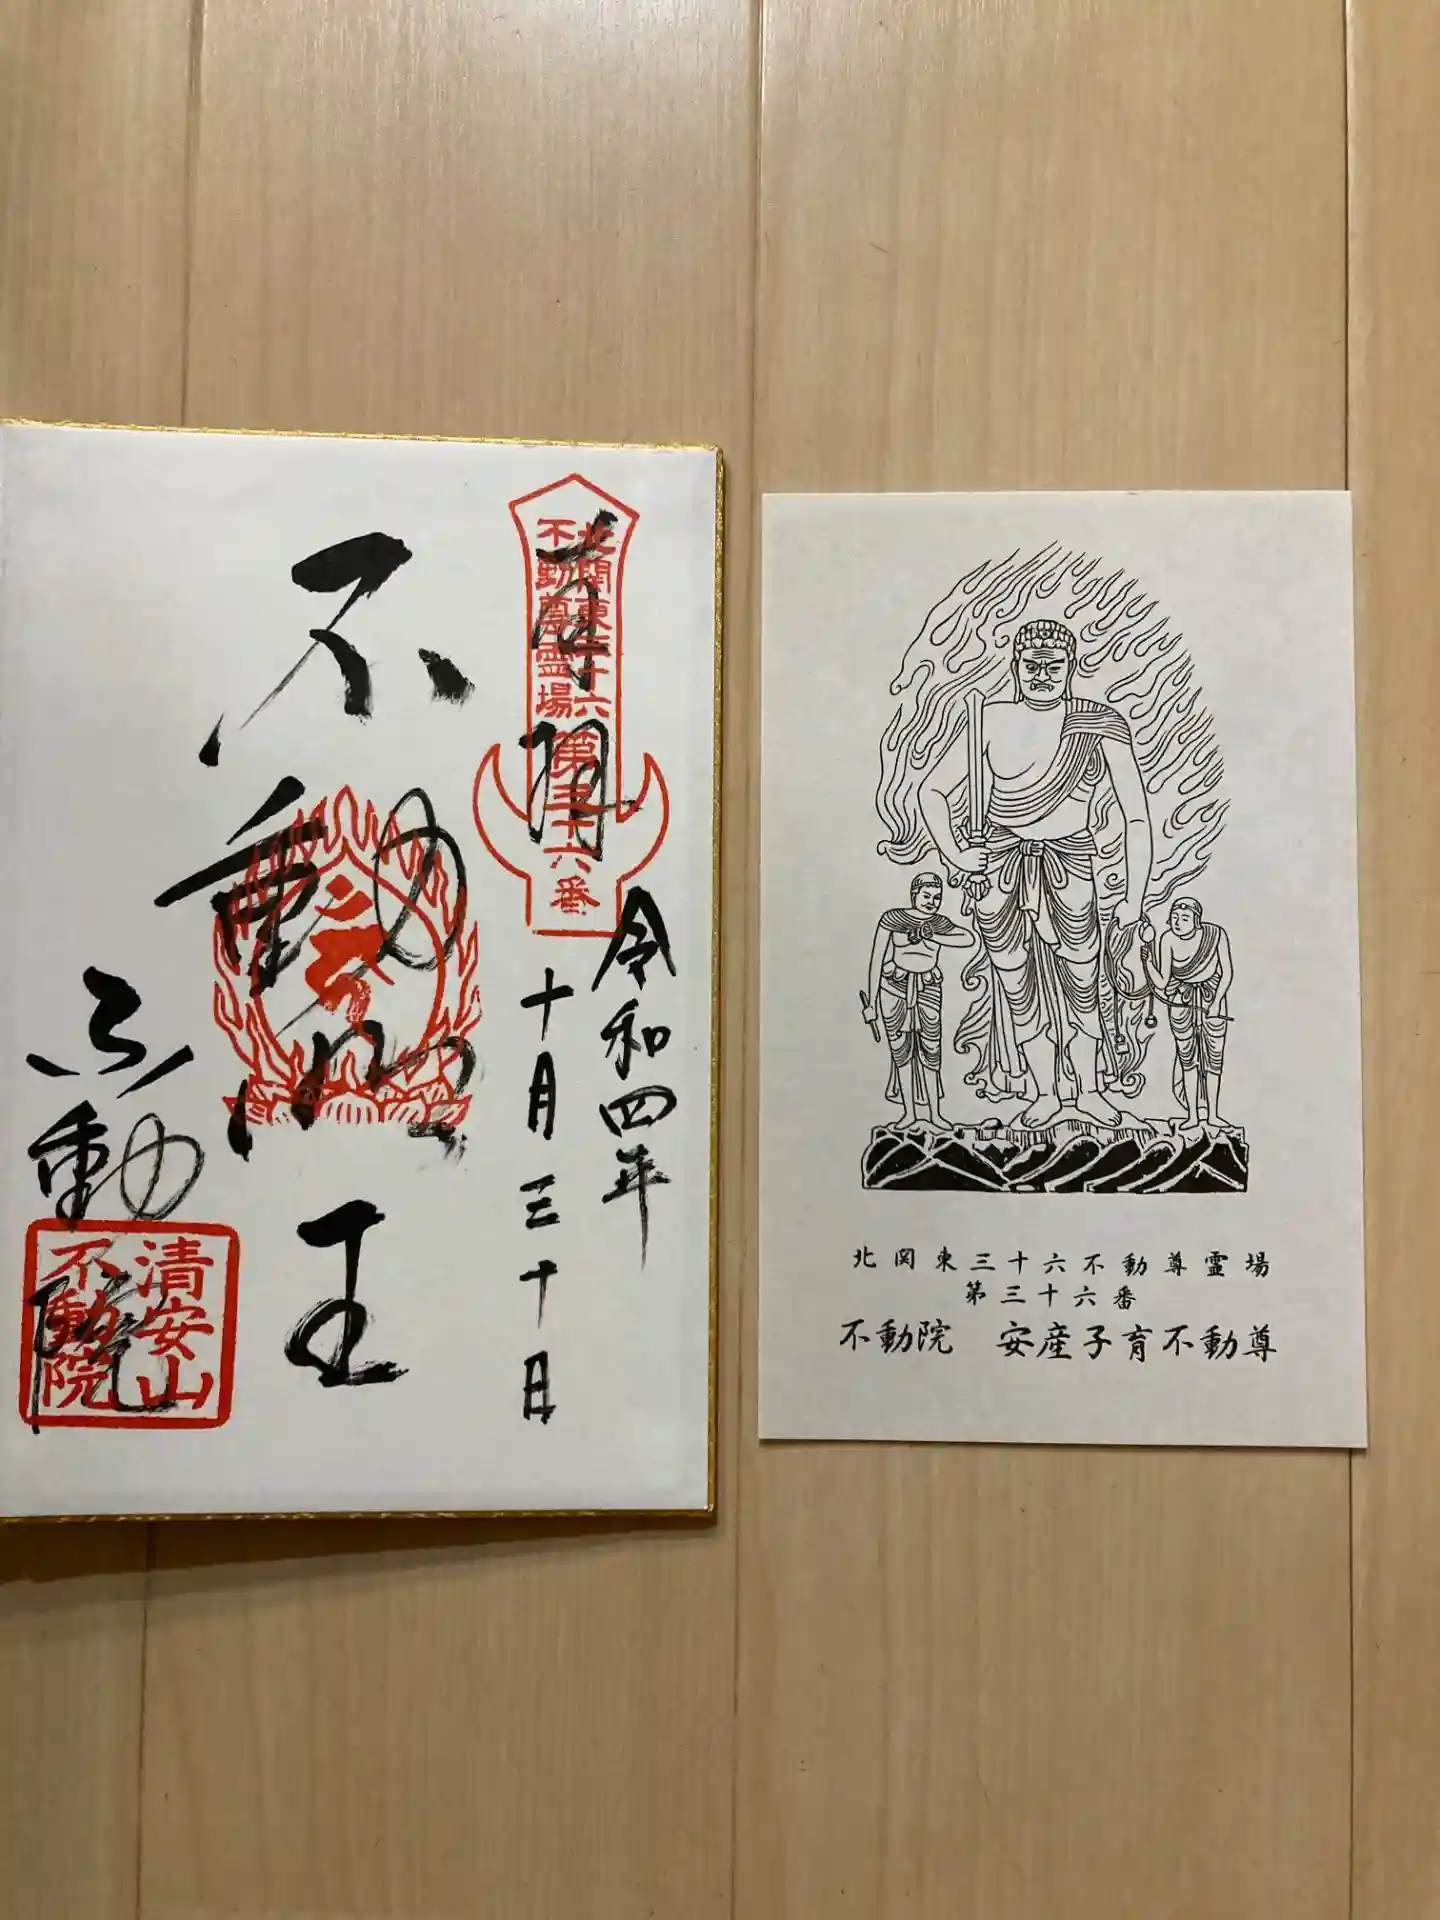 奉拝
北関東三十六
不動尊霊場
第三十六番
令和四年
十月三十日
不動明王
不動院
清安山
不動院
北関東三十六不動尊霊場
第三十六番
不動院　安産子育不動尊